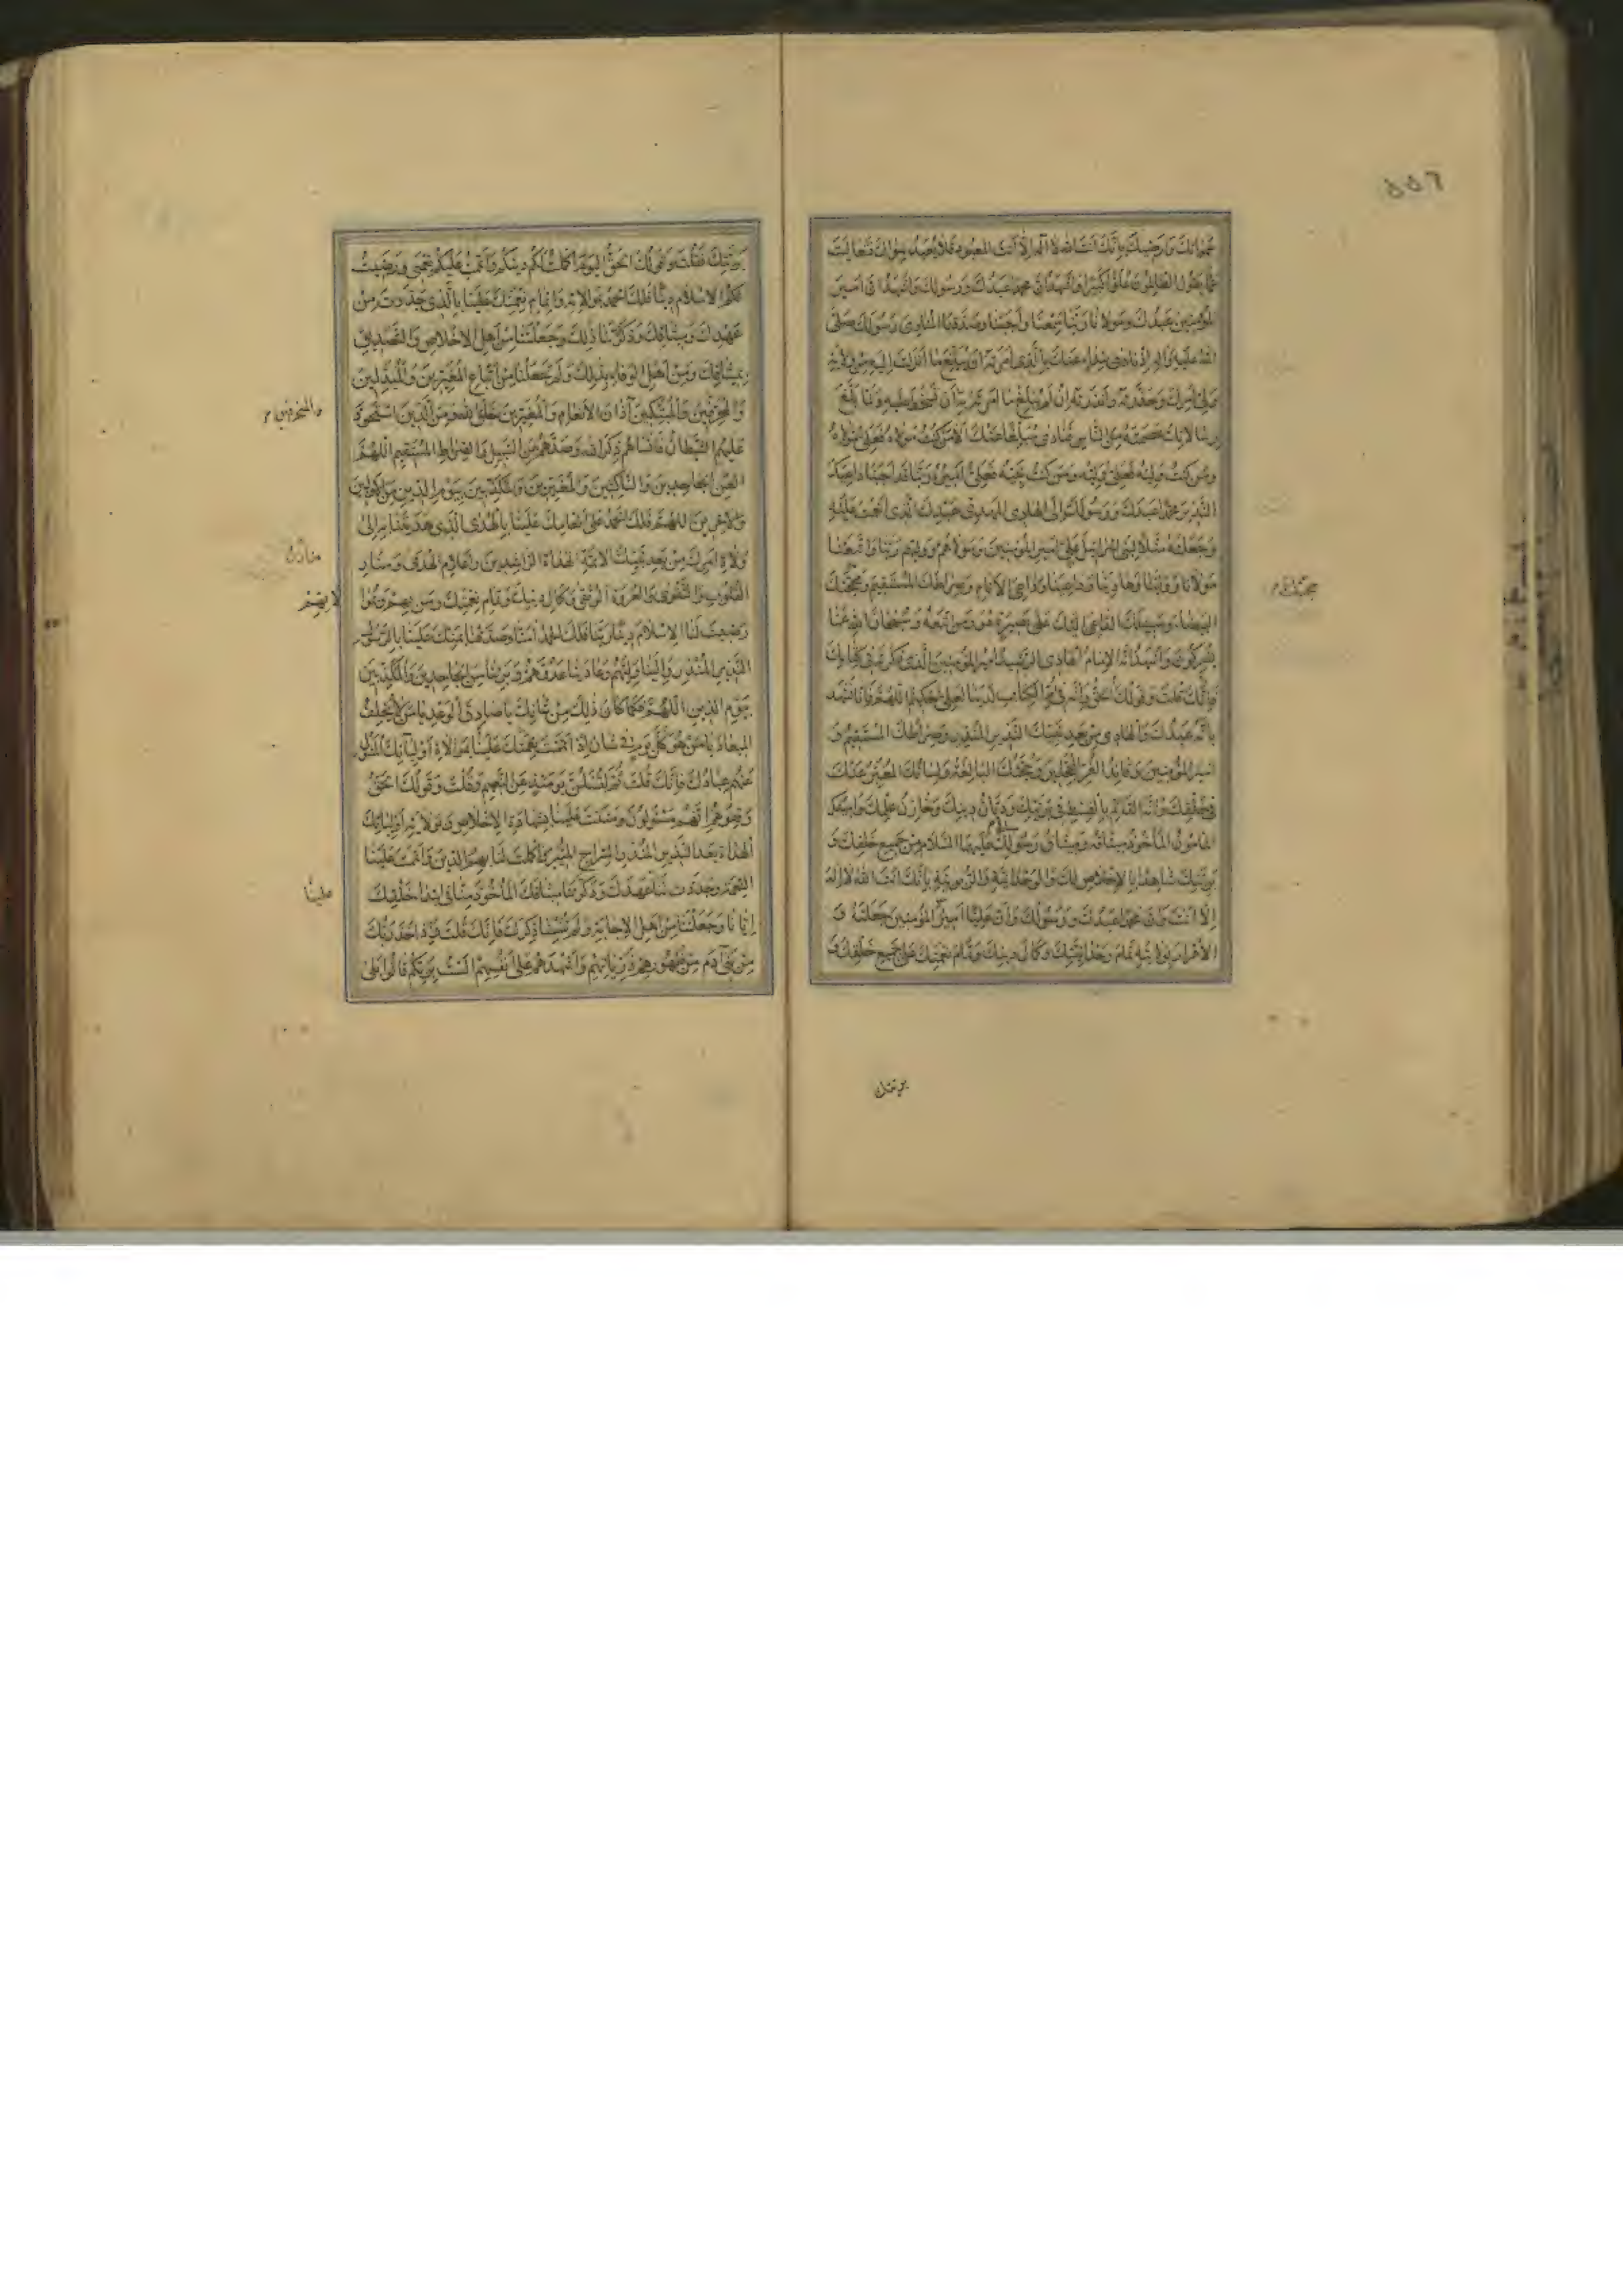 ٥٥٦
المؤمنين عبدك ومولانا ربنا سمعنا وأجبنا وصدقنا المنادي رسولك صلى
الله عليه وآله إذ نادى بنداء عنك بالذي أمرته أن يبلغ ما أنزلت إليه من ولاية
ولي أمرك وحذرته وأنذرته إن لم يبلغ ما أمرته أن تسخط عليه ولما بلغ
رسالاتك عصمته من الناس فنادى مبلغا عنك ألا من كنت مولاه فعلي مولاه
ومن كنت وليه فعلي وليه ومن كنت نبيه فعلي أميره ربنا قد أجبنا داعيك
النذير محمدا عبدك ورسولك إلى الهادي المهدي عبدك الذي أنعمت عليه
وجعلته مثلا لبني إسرائيل علي أمير المؤمنين ومولاهم ووليهم ربنا واتبعنا
مولانا وولينا وهادينا وداعينا وداعي الأنام وصراطك المستقيم وحجتك
البيضاء وسبيلك الداعي إليك على بصيرة هو ومن اتبعه وسبحان الله عما
يشركون وأشهد أنه الإمام الهادي الرشيد أمير المؤمنين الذي ذكرته في كتابك
فإنك قلت وقولك الحق وإنه في أم الكتاب لدينا لعلي حكيم اللهم فإنا نشهد
بأنه عبدك والهادي من بعد نبيك النذير المنذر وصراطك المستقيم و
أمير المؤمنين وقائد الغر المحجلين وحجتك البالغة ولسانك المعبر عنك
في خلقك وأنه القائم بالقسط في بريتك وديان دينك وخازن علمك وأمينك
المأمون المأخوذ ميثاقه وميثاق رسولك عليهما السلام من جميع خلقك و
بريتك شاهدا بالإخلاص لك والوحدانية والربوبية بأنك أنت الله لا إله
إلا أنت وأن محمدا عبدك ورسولك وأن عليا أمير المؤمنين جعلته و
الإقرار بولايته تمام وحدانيتك وكمال دينك وتمام نعمتك على جميع خلقك و
حجتك م
بريتك
بريتك فقلت وقولك الحق اليوم أكملت لكم دينكم وأتممت عليكم نعمتي ورضيت
لكم الإسلام دينا فلك الحمد بموالاته وإتمام نعمتك علينا بالذي جددت من
عهدك وميثاقك وذكرتنا ذلك وجعلتنا من أهل الإخلاص والتصديق
بميثاقك ومن أهل الوفاء بذلك ولم تجعلنا من أتباع المغيرين والمبدلين
والمحرفين والمبتكين آذان الأنعام والمغيرين خلق الله ومن الذين استحوذ
عليهم الشيطان فأنساهم ذكر الله وصدهم عن السبيل والصراط المستقيم اللهم
العن الجاحدين والناكثين والمغيرين والمكذبين بيوم الدين من الأولين
والآخرين اللهم فلك الحمد على إنعامك علينا بالهدى الذي هديتنا به إلى
ولاة أمرك من بعد نبيك الأئمة الهداة الراشدين وأعلام الهدى ومنار
القلوب والتقوى والعروة الوثقى وكمال دينك وتمام نعمتك ومن بهم
رضيت لنا الإسلام دينا ربنا فلك الحمد آمنا وصدقنا بمنك علينا بالرسول
النذير المنذر والينا وليهم وعادينا عدوهم وبرئنا من الجاحدين والمكذبين
بيوم الدين اللهم فكما كان ذلك من شأنك يا صادق الوعد يا من لا يخلف
الميعاد يا من هو كل يوم في شأن إذ أتممت نعمتك علينا بموالاة أوليائك المسئول
عنهم عبادك فإنك قلت ثم لتسئلن يومئذ عن النعيم وقلت وقولك الحق
وقفوهم إنهم مسئولون ومننت علينا بشهادة الإخلاص وبولاية أوليائك
الهداة بعد النذير المنذر السراج المنير وأكملت لنا بهم الدين وأتممت علينا
النعمة وجددت لنا عهدك وذكرتنا ميثاقك المأخوذ منا في ابتداء خلقك
إيانا وجعلتنا من أهل الإجابة ولم تنسنا ذكرك فإنك قلت وإذ أخذ ربك
من بني آدم من ظهورهم ذرياتهم وأشهدهم على أنفسهم ألست بربكم قالوا بلى
والمنحرفين م
علينا